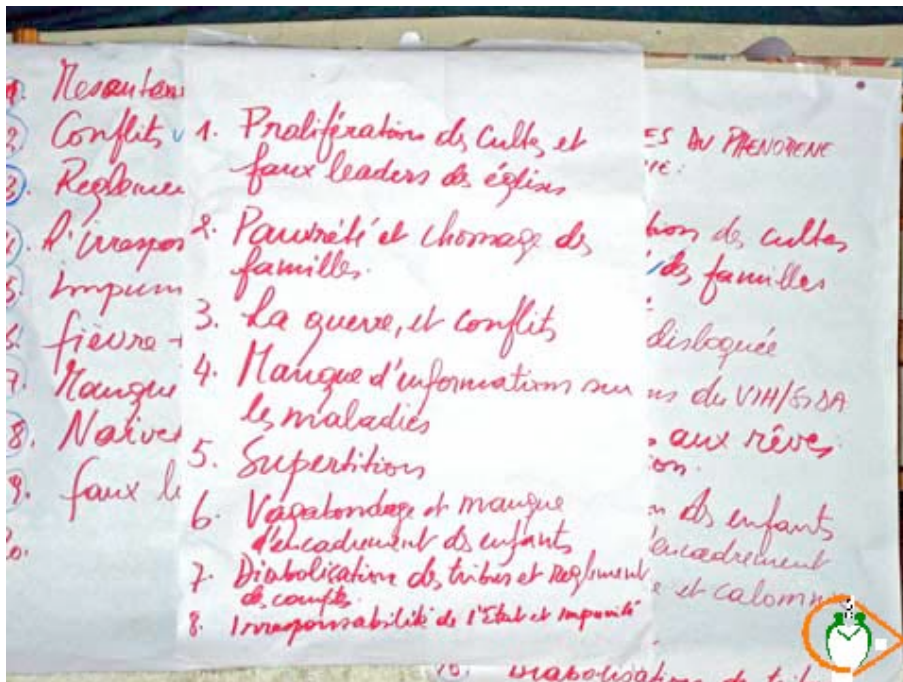 1. Mesenten
2. Conflits
3. Reglemen
4. L'irrespon
5. Impuni
6. fièvre
7. Manque
8. Naïve
9. faux le
10.
1. Prolifération des Cultes et
faux leaders des églises
2. Pauvrété et chomage des
familles.
3. La guerre, et conflits
4. Manque d'informations sur
les maladies
5. Supertitions
6. Vagabondage et manque
d'encadrement des enfants
7. Diabolisation des tribus et reglement
de comptes
8. Irresponsabilité de l'Etat et impunité
ES DU PHENOMENE
tion des cultes
des familles
disloquée
du VIH/SIDA
aux rêves
ion.
des enfants
encadrement
et calomn
10. Diabolisation de tribu